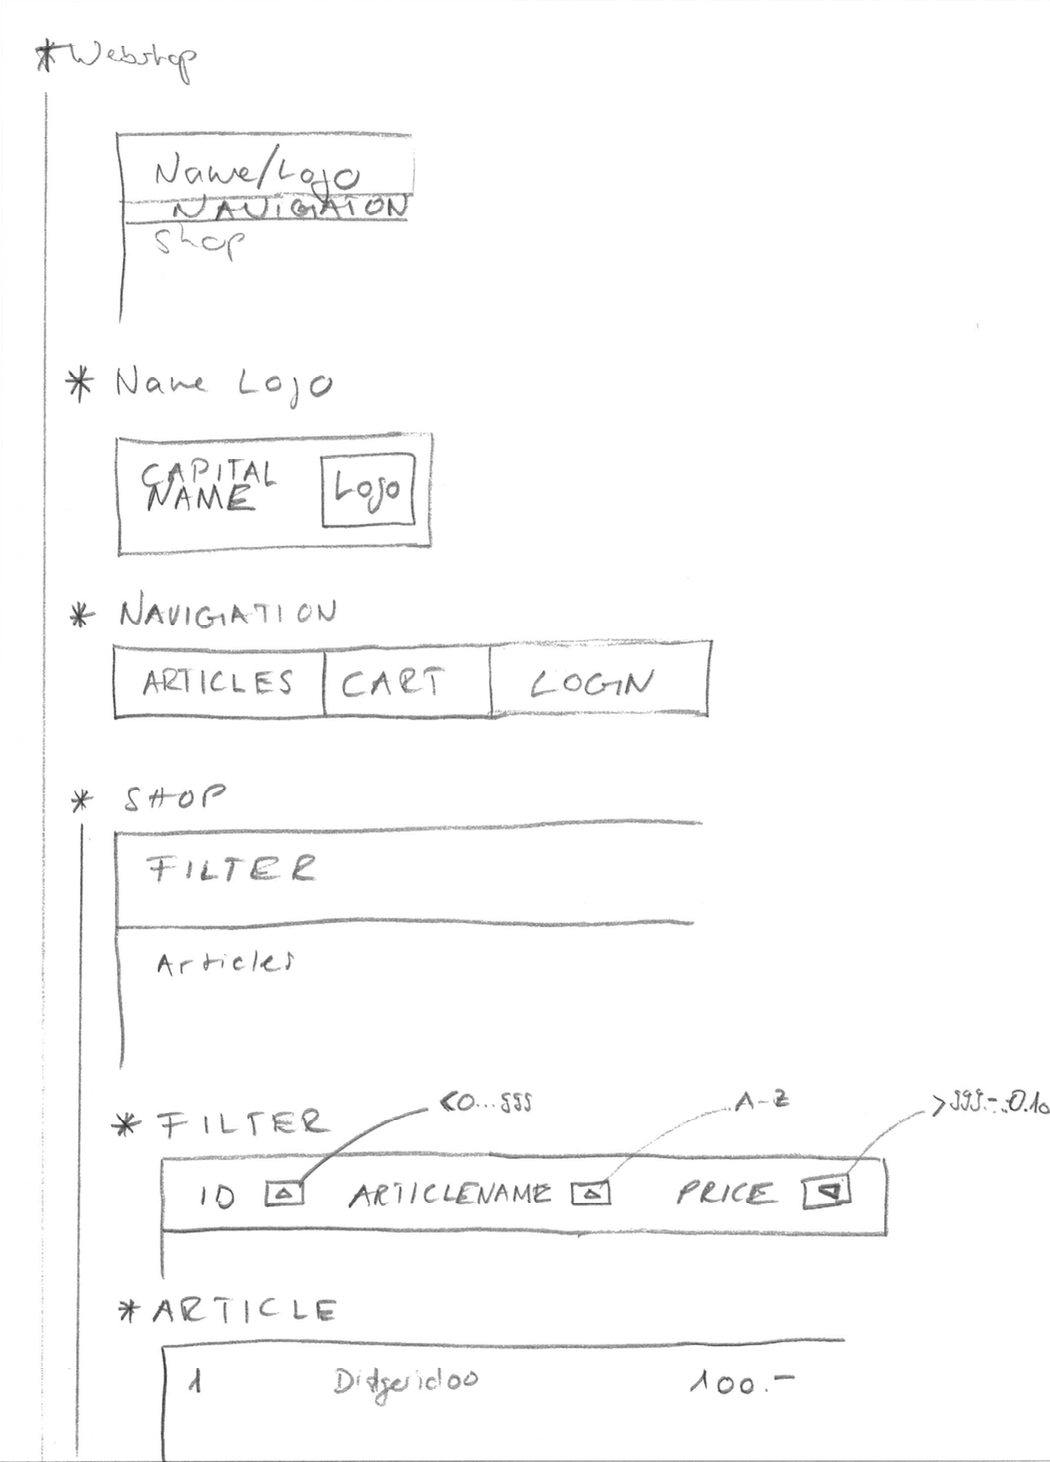 * Webshop
Name/Logo
NAVIGATION
Shop
* Name Logo
CAPITAL
NAME
Logo
* NAVIGATION
ARTICLES CART LOGIN
* SHOP
FILTER
Articles
<0...999 A-Z >999.-..0.10
* FILTER
ID ARTICLENAME PRICE
* ARTICLE
1 Didgeridoo 100.-